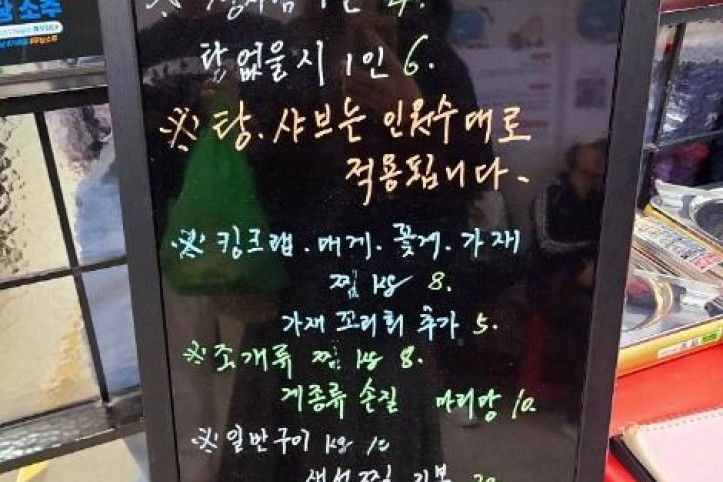 소주
※ 상차림 1인 4.
탕 없을시 1인 6.
※ 탕.샤브는 인원수대로
적용됩니다~
※ 킹크랩.대게.꽃게.가재
찜 kg 8.
가재 꼬리회 추가 5.
※ 조개류 찜 kg 8.
게종류 손질 마리당 10
※ 일반구이 kg 10
생선찜 기본